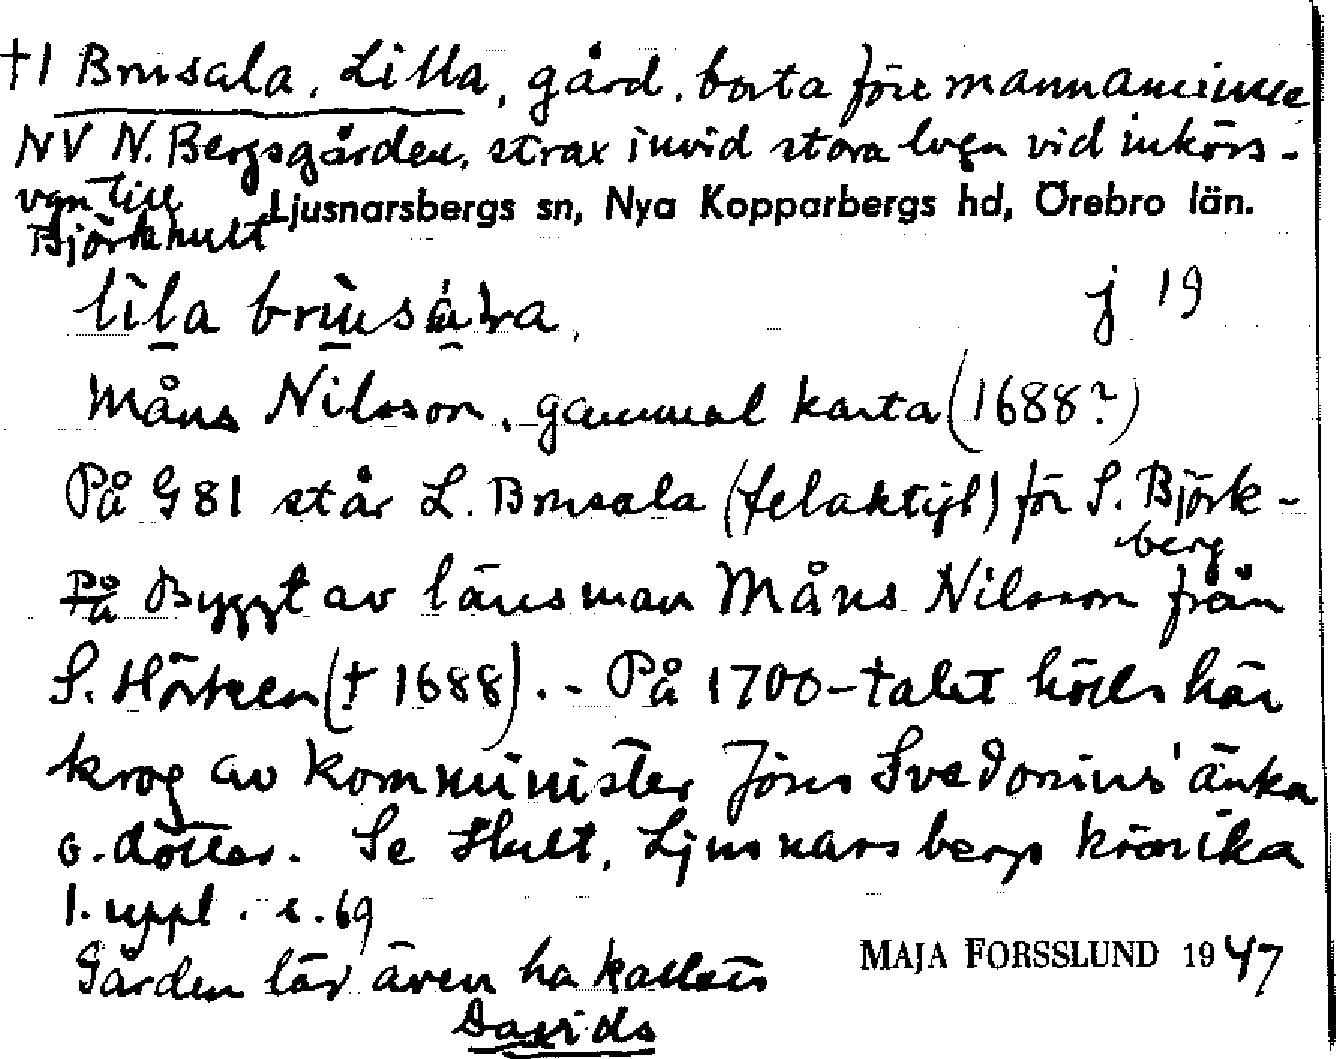 †1 Brusala, Lilla, gård, borta före mannaminne
NV N. Bergsgården, strax invid stora logen vid inkörs-
vgn till
Björkhult
Ljusnarsbergs sn, Nya Kopparbergs hd, Örebro län.
lila brusala.
j 19
Måns Nilsson, gammal karta (1688?)
På G81 står L. Brusala (felaktigt) för S. Björk-
berg
På Byggt av länsman Måns Nilsson från
S. Hörken († 1688). - På 1700-talet hölls här
krog av komminister Jöns Svedonius' änka
o. dötter. Se Hult, Ljusnarsbergs krönika
1. uppl. s. 69
Gården lär även ha kallats
Davids
MAJA FORSSLUND 1947